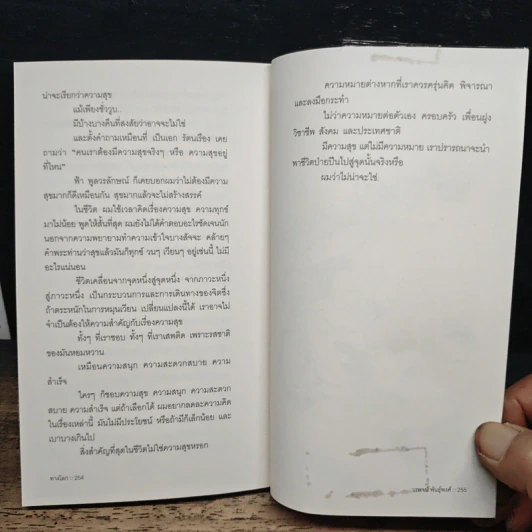 น่าจะเรียกว่าความสุข
แม้เพียงชั่ววูบ..
มีบ้างบางคืนที่สงสัยว่าอาจจะไม่ใช่
และตั้งคำถามเหมือนที่ เป็นเอก รัตนเรือง เคย
ถามว่า "คนเราต้องมีความสุขจริงๆ หรือ ความสุขอยู่
ที่ไหน"
ฟ้า พูลวรลักษณ์ ก็เคยบอกผมว่าไม่ต้องมีความ
สุขมากก็ดีเหมือนกัน สุขมากแล้วจะไม่สร้างสรรค์
ในชีวิต ผมใช้เวลาคิดเรื่องความสุข ความทุกข์
มาไม่น้อย พูดให้สั้นที่สุด ผมยังไม่ได้คำตอบอะไรชัดเจนนัก
นอกจากความพยายามทำความเข้าใจบางสัจจะ คล้ายๆ
คำพระท่านว่าสุขแล้วมันก็ทุกข์ วนๆ เวียนๆ อยู่เช่นนี้ ไม่มี
อะไรแน่นอน
ชีวิตเคลื่อนจากจุดหนึ่งสู่จุดหนึ่ง จากภาวะหนึ่ง
สู่ภาวะหนึ่ง เป็นกระบวนการและการเดินทางของจิตซึ่ง
ถ้าตระหนักในการหมุนเวียน เปลี่ยนแปลงนี้ได้ เราอาจไม่
จำเป็นต้องให้ความสำคัญกับเรื่องความสุข
ทั้งๆ ที่เราชอบ ทั้งๆ ที่เราเสพติด เพราะรสชาติ
ของมันหอมหวาน
เหมือนความสนุก ความสะดวกสบาย ความ
สำเร็จ
ใครๆ ก็ชอบความสุข ความสนุก ความสะดวก
สบาย ความสำเร็จ แต่ถ้าเลือกได้ ผมอยากลดละความคิด
ในเรื่องเหล่านี้ มันไม่มีประโยชน์ หรือถ้ามีก็เล็กน้อย และ
เบาบางเกินไป
สิ่งสำคัญที่สุดในชีวิตไม่ใช่ความสุขหรอก
ทางโลก :: 254
ความหมายต่างหากที่เราควรครุ่นคิด พิจารณา
และลงมือกระทำ
ไม่ว่าความหมายต่อตัวเอง ครอบครัว เพื่อนฝูง
วิชาชีพ สังคม และประเทศชาติ
มีความสุข แต่ไม่มีความหมาย เราปรารถนาจะนำ
พาชีวิตป่ายปีนไปสู่จุดนั้นจริงหรือ
ผมว่าไม่น่าจะใช่.
พันธุ์พงศ์ :: 255